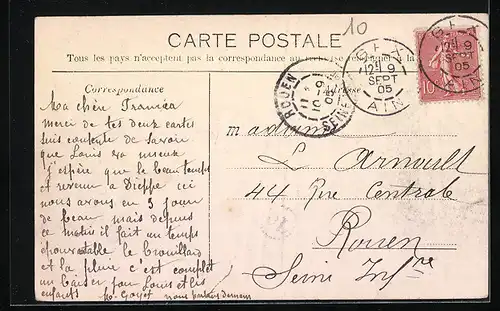 10
CARTE POSTALE
Tous les pays n'acceptent pas la correspondance au recto
Correspondance
Adresse
GEX
12 9
SEPT
05
AIN
GEX
12 9
SEPT
05
AIN
ROUEN
SEINE
10
Ma chère
merci de tes deux cartes
suis contente de savoir
que Louis va mieux
J'espère que le beau temps
est revenu à Dieppe ici
nous avons eu 3 jours
de beau mais depuis
ce matin il fait un temps
épouvantable le brouillard
et la pluie c'est complet
un baiser pour Louis et les
enfants
madame
L Arnoult
44 Rue Centrale
Rouen
Seine Infre